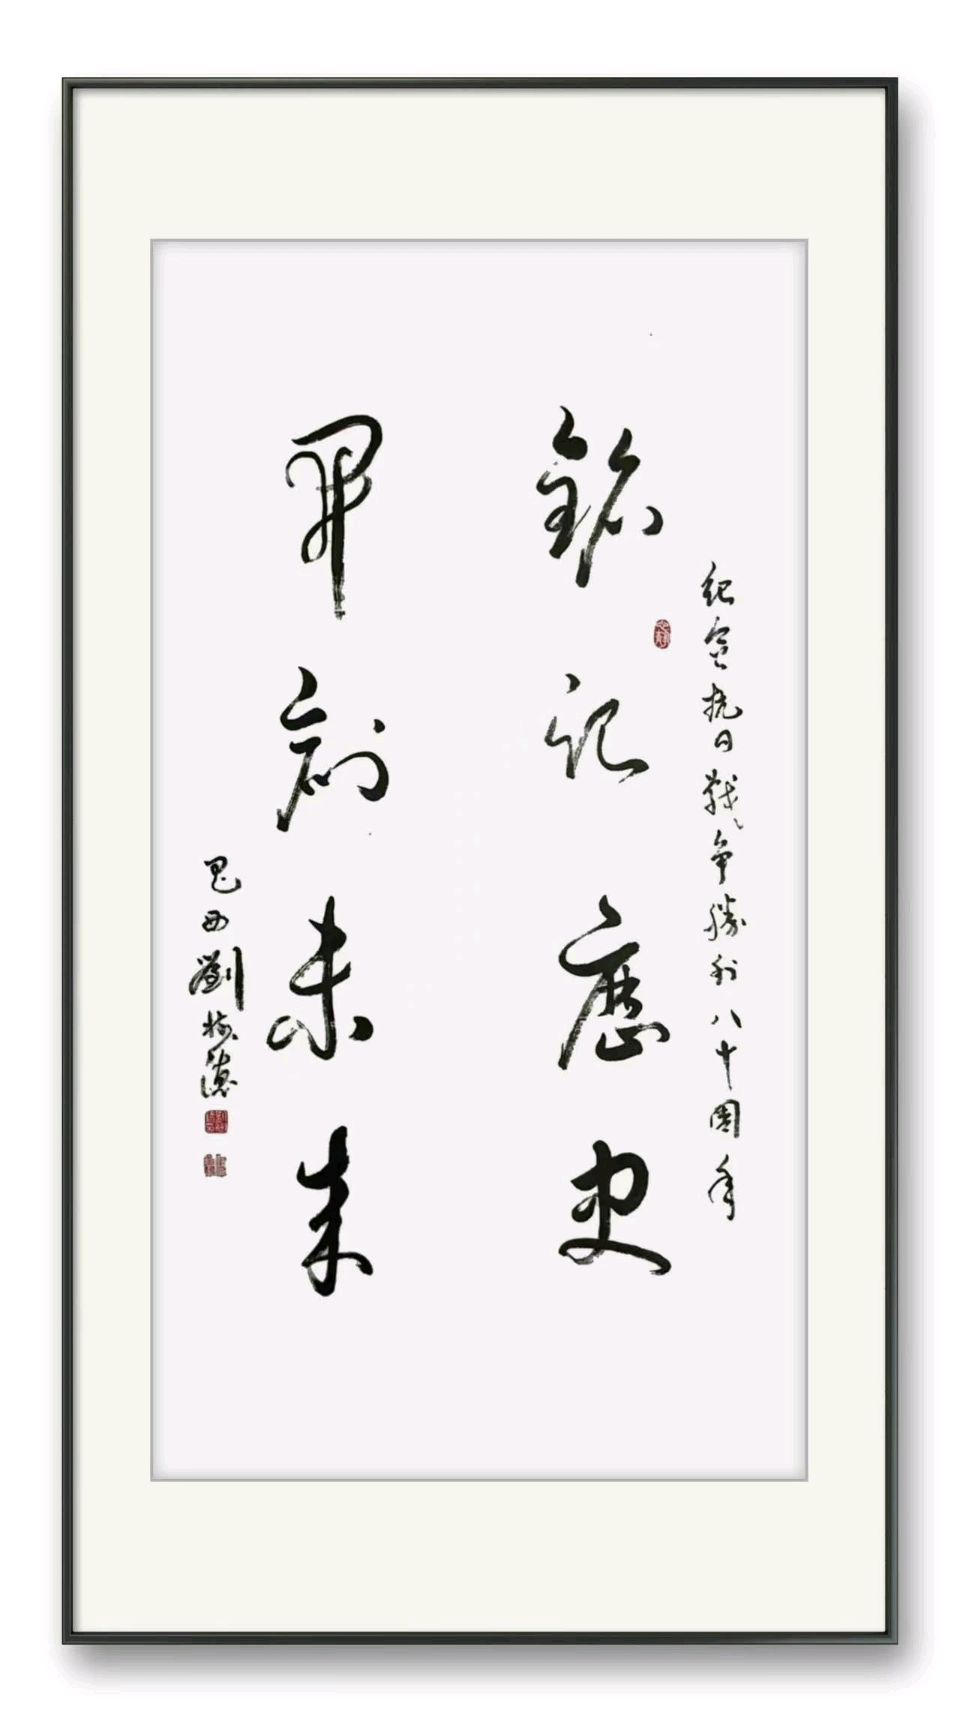 紀念抗日戰争勝利八十周年
銘記歷史
開創未来
巴西劉